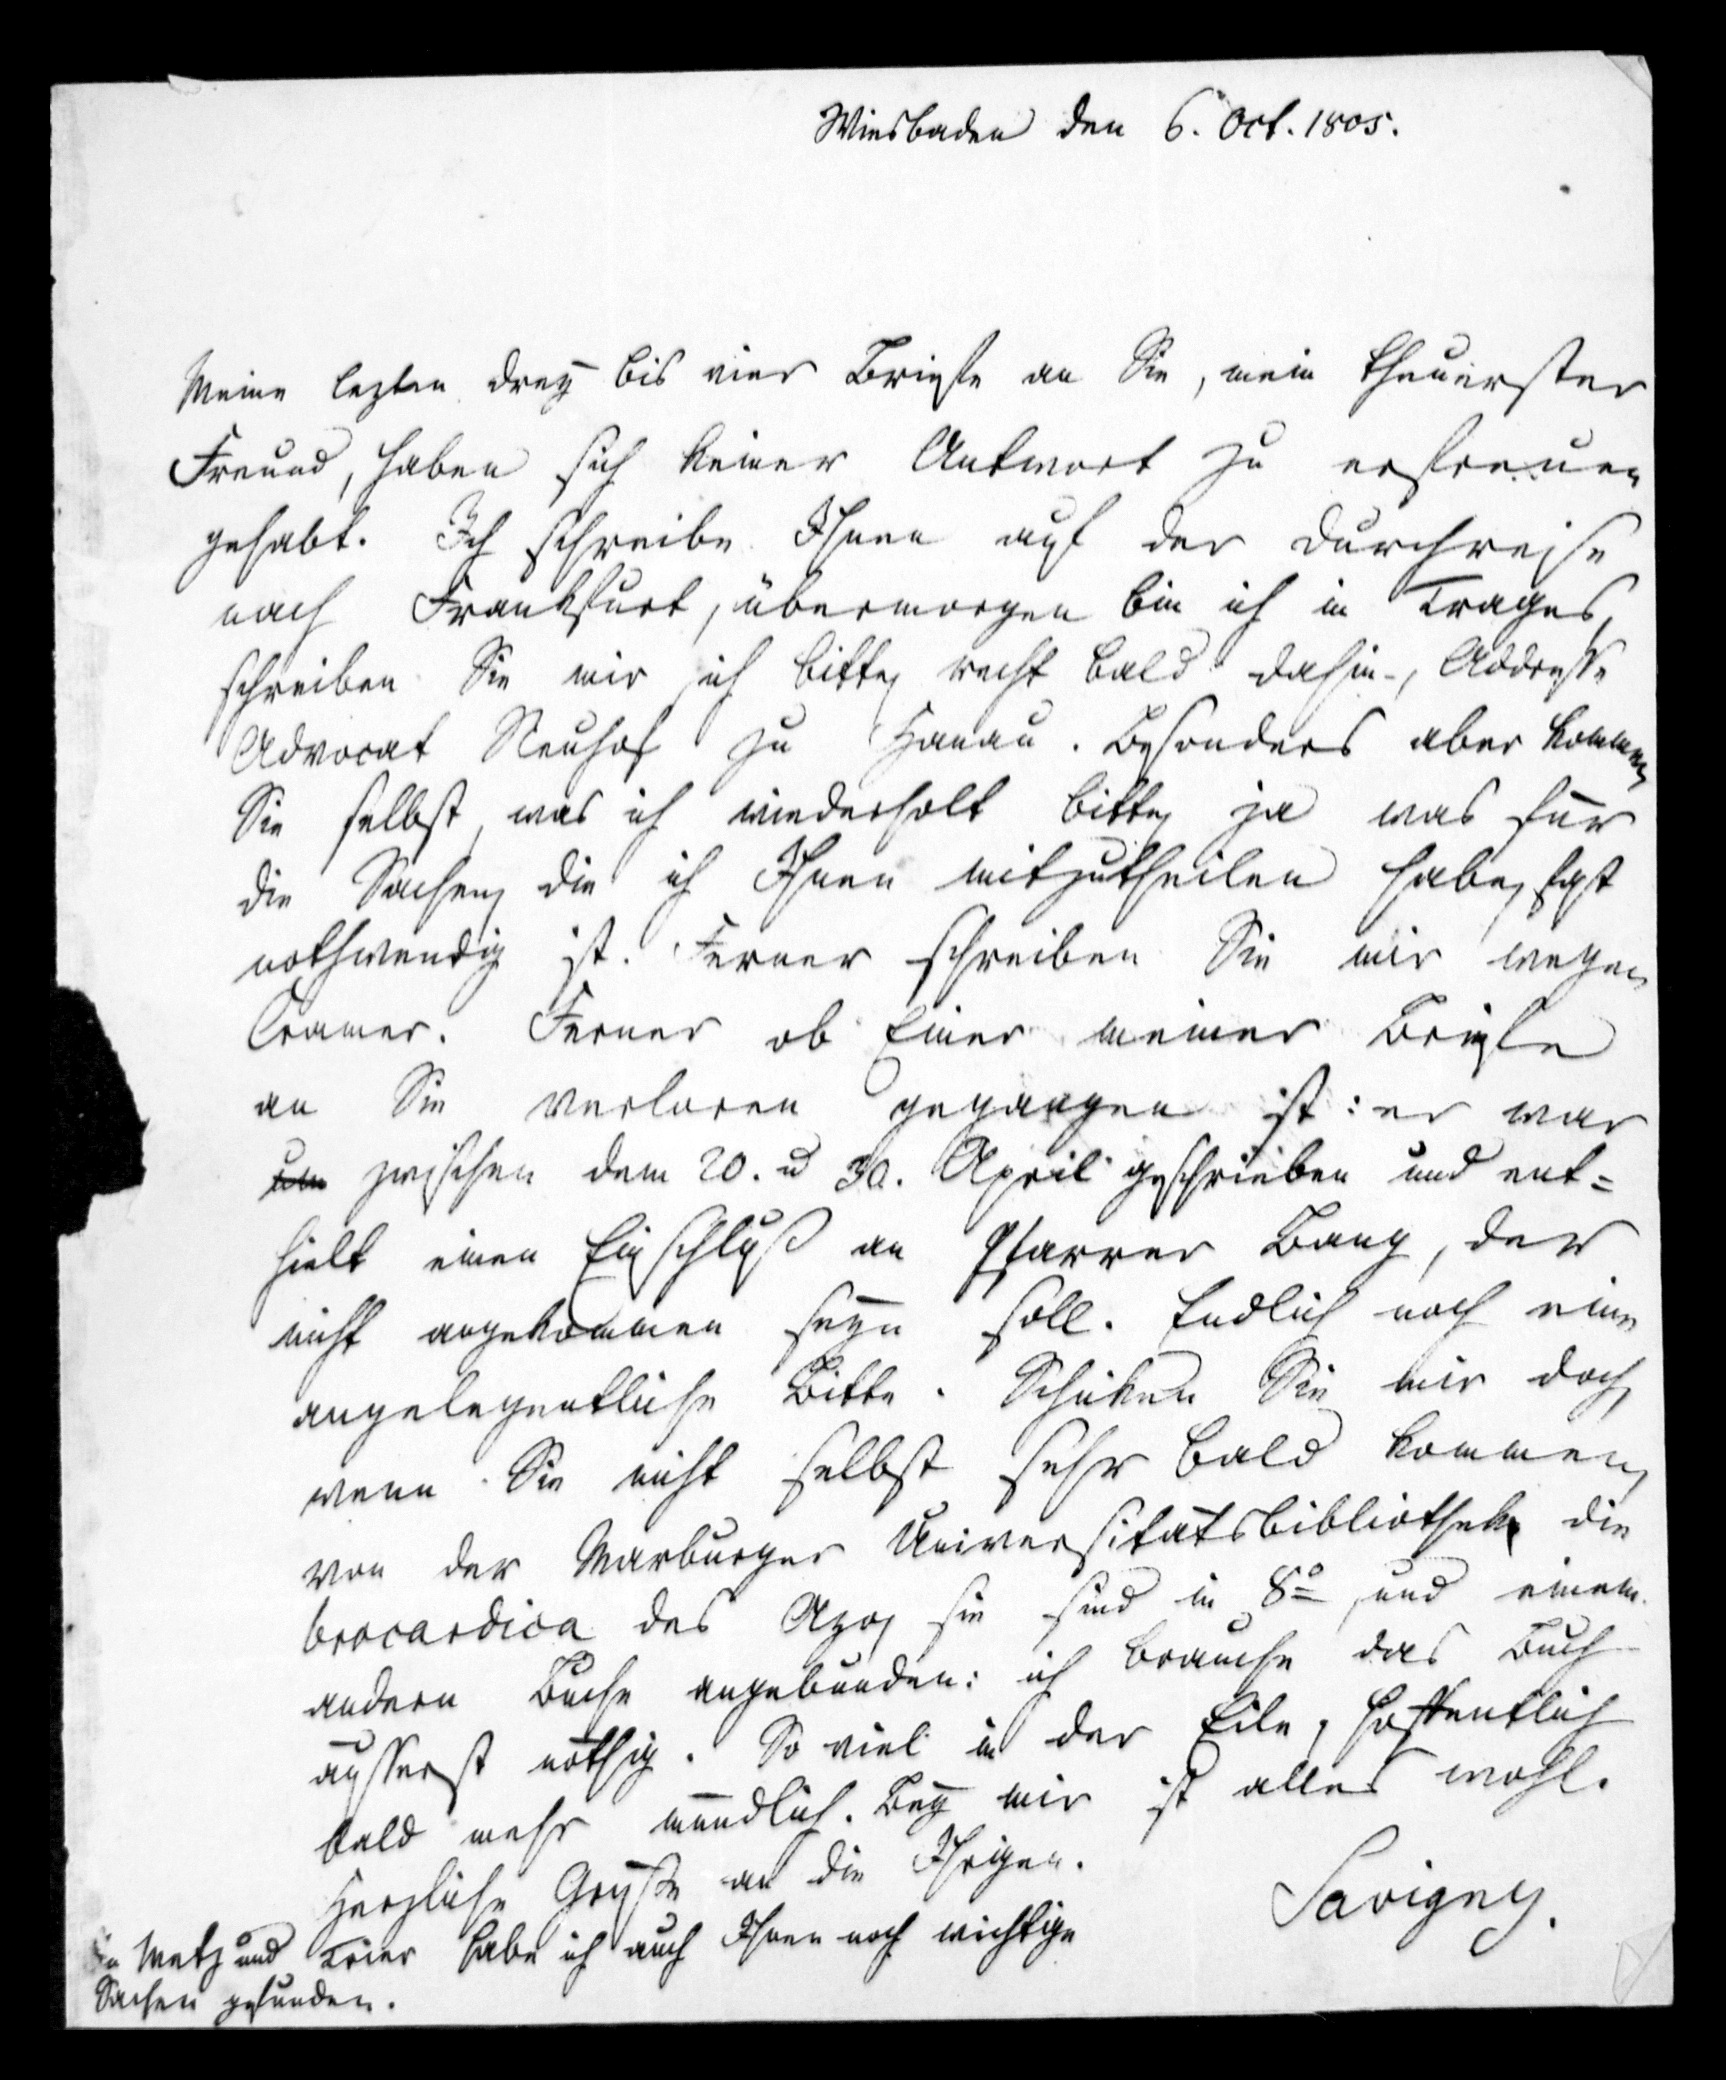 Wiesbaden den 6. Oct. 1805.
Meine lezten drey bis vier Briefe an Sie, mein theuerster
Freund, haben sich keiner Antwort zu erfreuen
gehabt. Ich schreibe Ihnen auf der Durchreise
nach Frankfurt, übermorgen bin ich in Trages,
schreiben Sie mir, ich bitte, recht bald dahin, Addresse
Advocat Neuhof zu Hanau. Besonders aber kommen
Sie selbst, was ich wiederholt bitte, ja was für
die Sachen, die ich Ihnen mitzutheilen habe, fast
nothwendig ist. Ferner schreiben Sie mir wegen
Cramer. Ferner ob Einer meiner Briefe
an Sie verloren gegangen ist: er war
um zwischen dem 20. u 30. April geschrieben und ent=
hielt einen Einschluß an Pfarrer Bang, der
nicht angekommen seyn soll. Endlich noch eine
angelegentliche Bitte. Schicken Sie mir doch,
wenn Sie nicht selbst sehr bald kommen,
von der Marburger Universitätsbibliothek die
brocardica des Azo, sie sind in 8º und einem
andern Buche angebunden: ich brauche das Buch
äusserst nöthig. So viel in der Eile, hoffentlich
bald mehr mündlich. Bey mir ist alles wohl.
Herzliche Grüße an die Ihrigen.
Savigny.
In Metz und Trier habe ich auch Ihnen noch wichtige
Sachen gefunden.